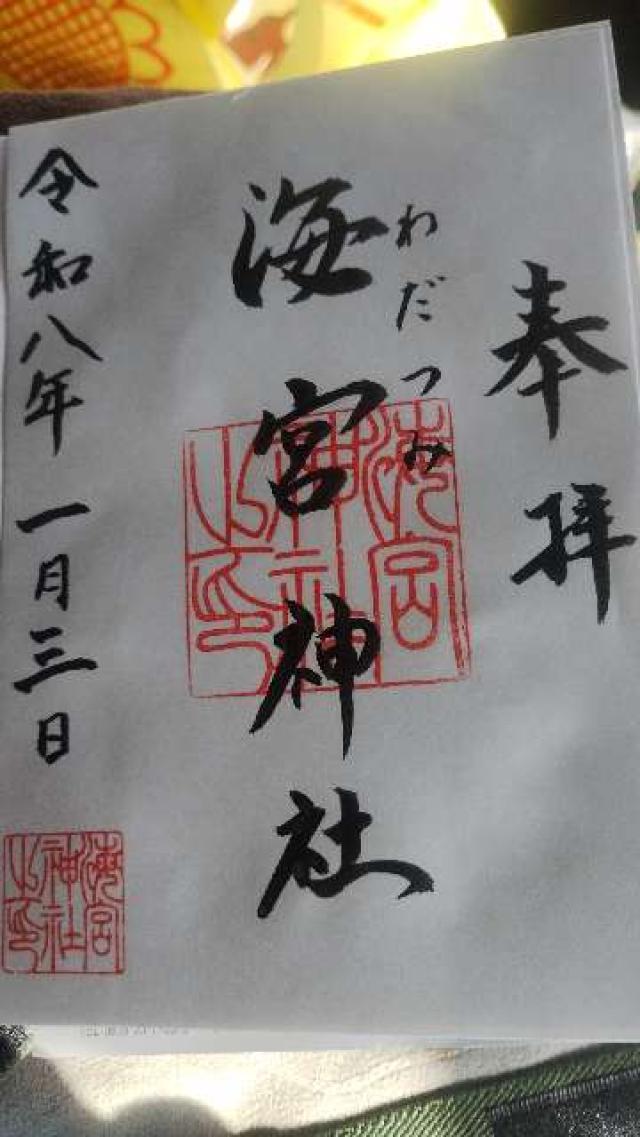 奉拝
わだつみ
海宮神社
海宮
神社
之印
令和八年一月三日
海宮
神社
之印